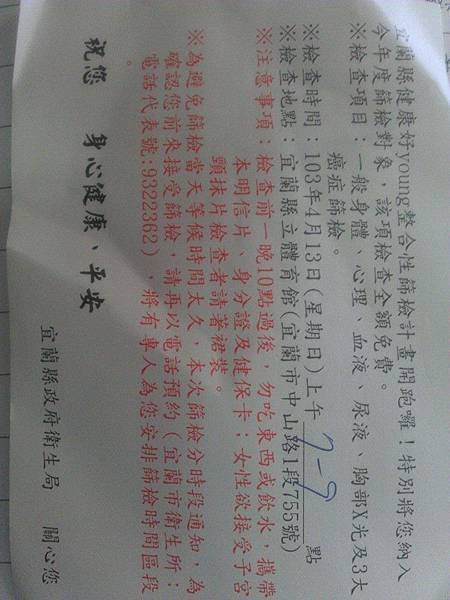 宜蘭縣健康好young整合性篩檢計畫開跑囉！特別將您納入
今年度篩檢對象，該項檢查全額免費。
※檢查項目：一般身體、心理、血液、尿液、胸部X光及3大
癌症篩檢。
※檢查時間：103年4月13日(星期日)上午 7-9 點
※檢查地點：宜蘭縣立體育館(宜蘭市中山路1段755號)
※注意事項：檢查前一晚10點過後，勿吃東西或飲水，攜帶
本明信片、身分證及健保卡；女性欲接受子宮
頸抹片檢查者請著裙裝。
※為避免篩檢當天等候時間太久，本次篩檢分時段通知，為
確認您前來接受篩檢，請再以電話預約（宜蘭市衛生所：
電話代表號:9322362），將有專人為您安排篩檢時間區段
。
祝您 身心健康、平安
宜蘭縣政府衛生局 關心您